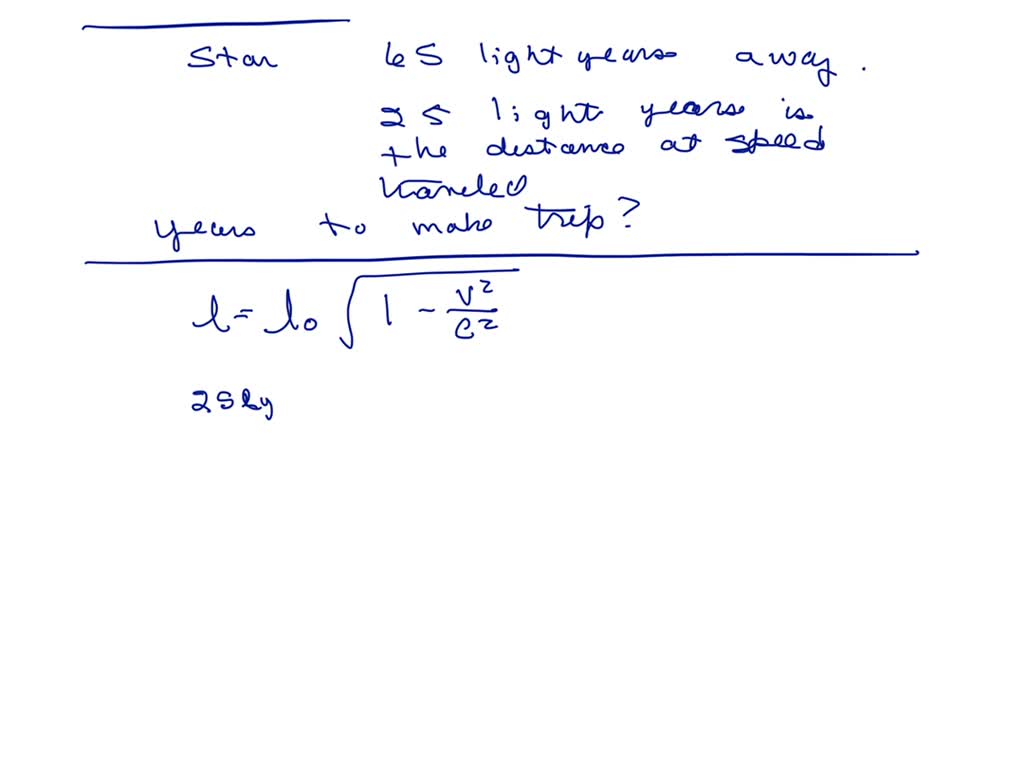 Star 65 light years away.
25 light years is
the distance at speed
traveled
years to make trip?
l = l₀ √(1 - v²/c²)
25 ly